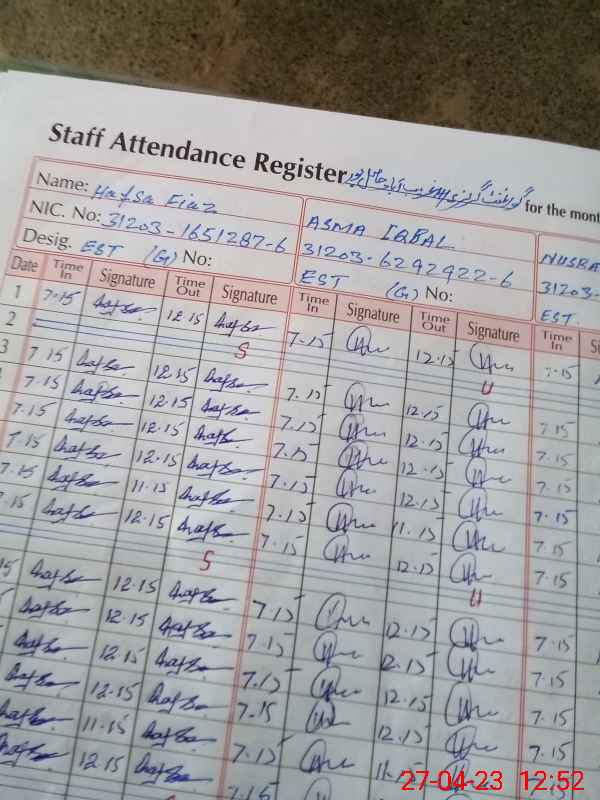 Staff Attendance Register for the mont
Name: Hafsa Fiaz ASMA IQBAL NUSRA
NIC. No: 31203-1651287-6 31203-6292922-6 31203-
Desig. EST (G) No: EST (G) No: EST.
Date Time In Signature Time Out Signature Time In Signature Time Out Signature Time In
1 7.15 Hafsa 12.15 Hafsa 7.15 12.15 7.15
2 S U
3 7.15 Hafsa 12.15 Hafsa 7.15 12.15 7.15
7.15 Hafsa 12.15 Hafsa 7.15 12.15 7.15
7.15 Hafsa 12.15 Hafsa 7.15 12.15 7.15
7.15 Hafsa 12.15 Hafsa 7.15 12.15 7.15
7.15 Hafsa 11.15 Hafsa 7.15 11.15 7.15
7.15 Hafsa 12.15 Hafsa 7.15 12.15 7.15
S U
15 Hafsa 12.15 Hafsa 7.15 12.15 7.15
Hafsa 12.15 Hafsa 7.15 12.15 7.15
Hafsa 12.15 Hafsa 7.15 12.15 7.15
Hafsa 12.15 Hafsa 7.15 12.15 7.15
Hafsa 11.15 Hafsa 7.15 11.
Hafsa 12.15 Hafsa 7.15
27-04-23 12:52